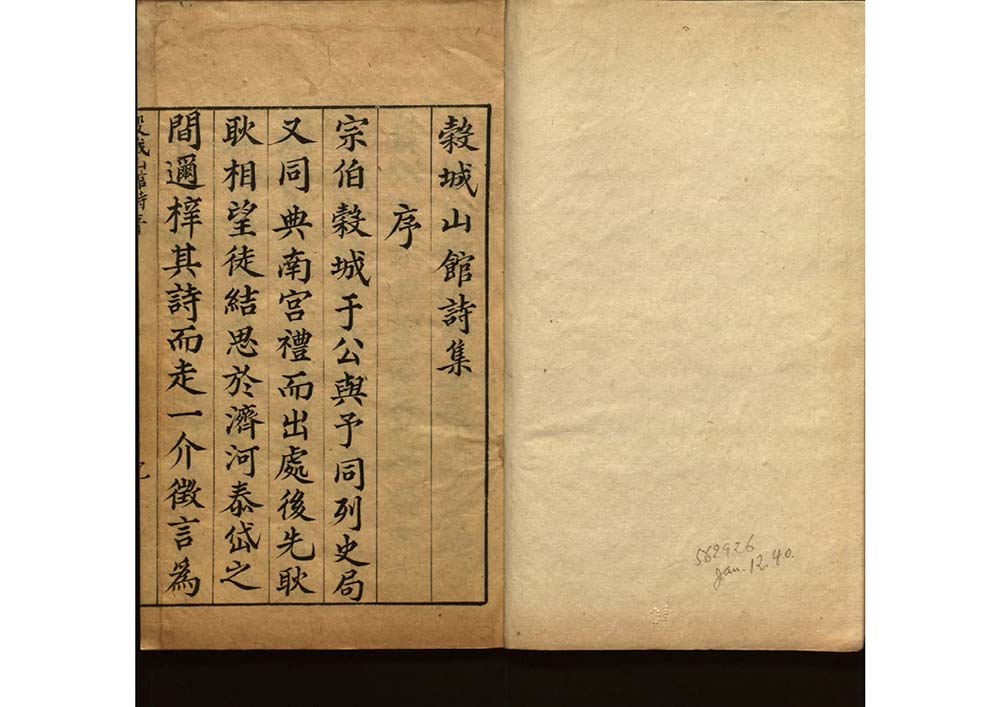 穀城山館詩集
序
宗伯穀城于公與予同列史局
又同典南宮禮而出處後先耿
耿相望徒結思於濟河泰岱之
間邇梓其詩而走一介徵言為
562926
Jan. 12. 40.